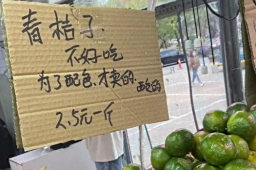 青桔子.
不好吃
为了配色.才卖的.
2.5元一斤